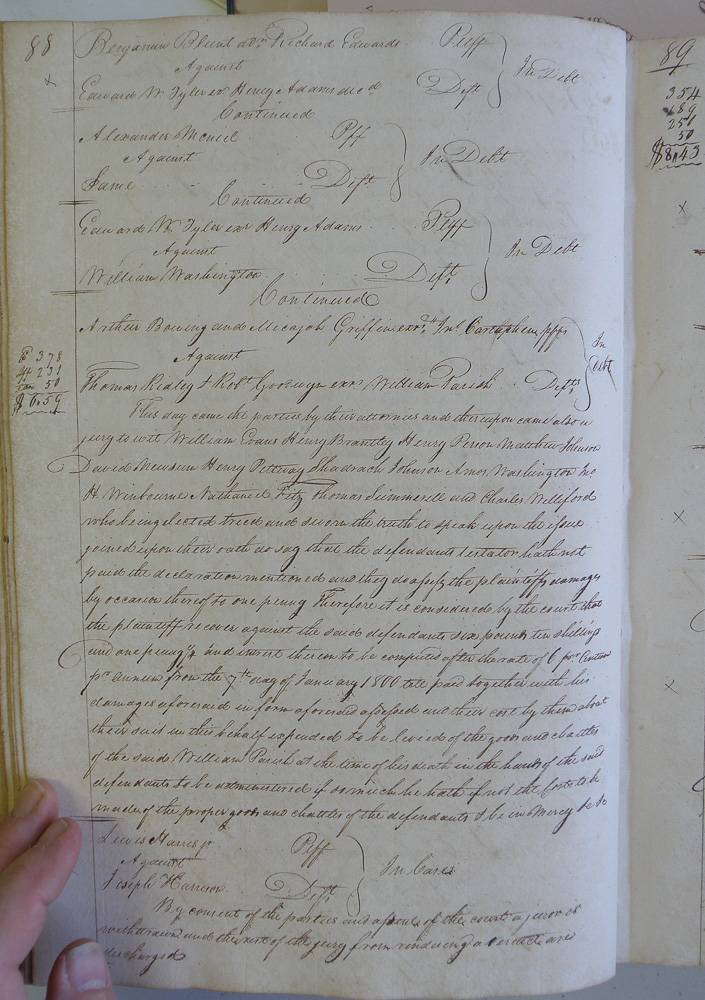 88
Benjamin Blunt adr. Richard Edwards Plff
Against In Debt
Edward W. Tyler exr Henry Adams decd Deft
Continued
Alexander Plff
Against In Debt
Same Deft
Continued
Edward W. Tyler exr Henry Adams Plff
Against In Debt
William Washington Deft.
Continued
Arthur Bowing and Micajah Griffin exrs. Jno. plffs In
Against Debt
Thomas Ridley & Robt. Goodwyn exrs William Parish Defts
378
231
50
$6.59
This day came the parties by their attornies and thereupon came also a
jury to wit William Evans Henry Brantley Henry Person Matthew Johnson
David Newsum Henry Pettway Shadrach Johnson Amos Washington Jno
H. Winbourne Nathaniel Fitz Thomas and Charles Willeford
who being elected tried and sworn the truth to speak upon the issue
joined upon their oath do say that the defendants testator hath not
paid the declaration mentioned and they do assess the plaintiffs damages
by occasion thereof to one penny Therefore it is considered by the court that
the plaintiff recover against the said defendants six pounds ten shillings
and one penny and interest thereon to be computed after the rate of 6 pr. Centum
pr annum from the 7th day of January 1800 till paid together with his
damages aforesaid in form aforesaid assessed and their cost by them about
their suit in this behalf expended to be levied of the goods and chattles
of the said William Parish at the time of his death in the hands of the said
defendants to be administered if so much he hath if not the Costs to be
made of the proper goods and chattles of the defendants & be in Mercy &c &c
Lewis Harris jr. Plff
Against In Case
Joseph Harrison Deft.
By consent of the parties and assent of the court a juror is
withdrawn and the rest of the jury from rendering a verdict are
discharged
89
354
189
251
50
$8.43